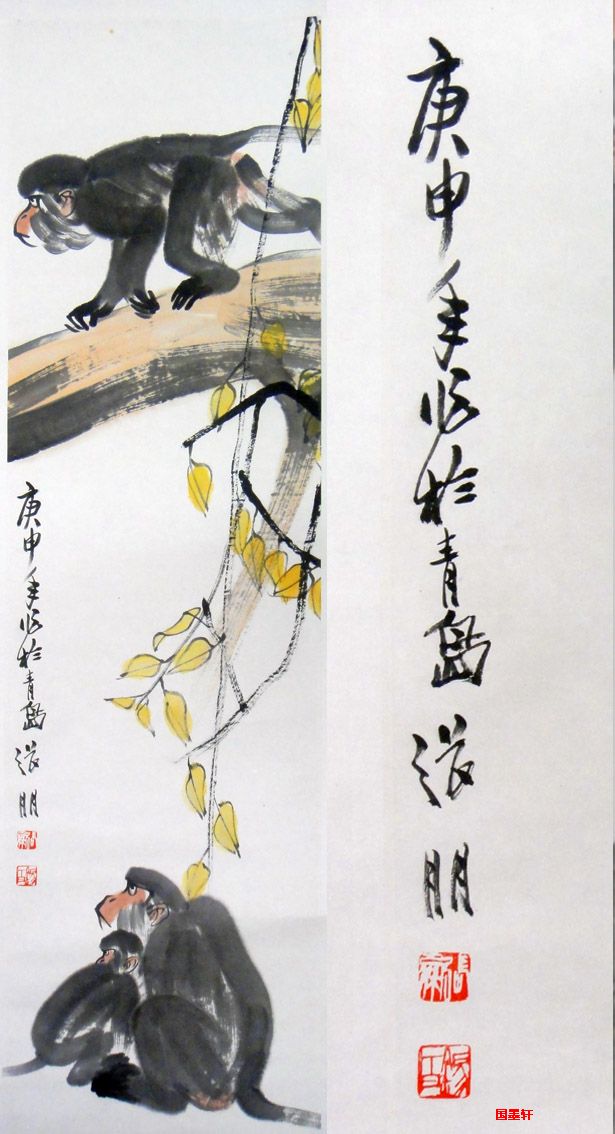 庚申年作於青島 張朋
庚申年作於青島 張朋
国墨轩